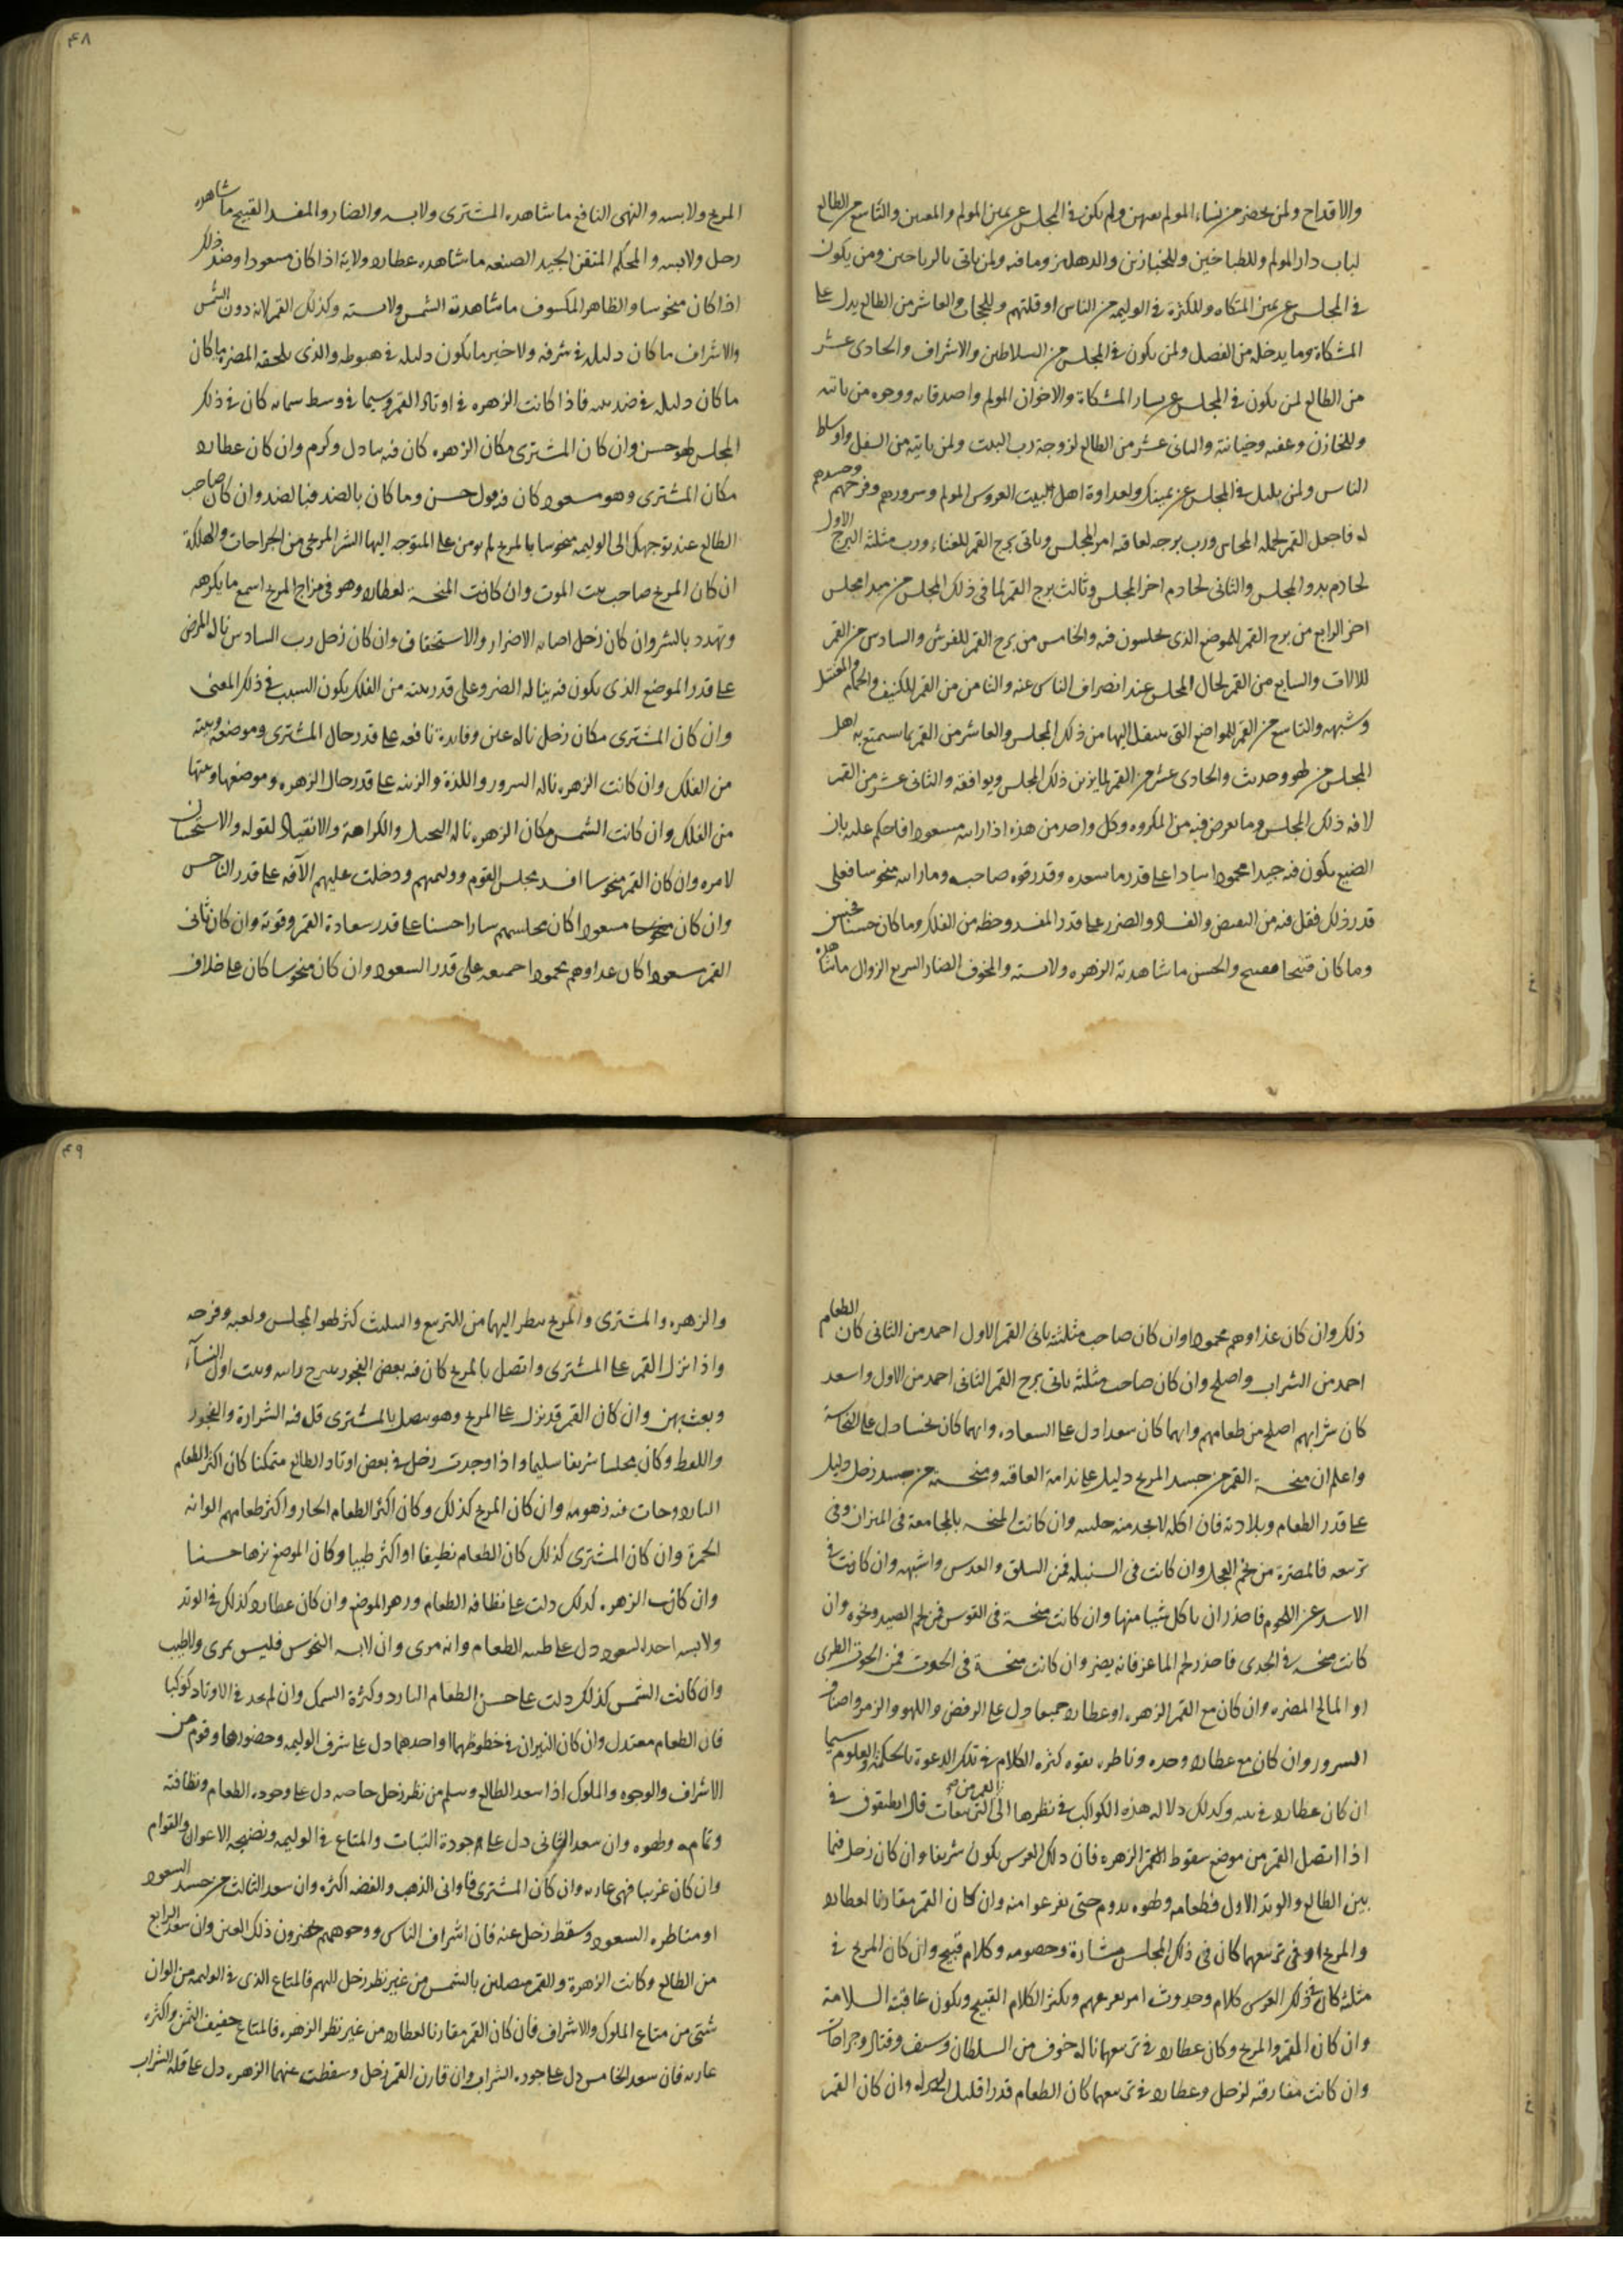 والاقداح ولمن يحضر من نساء المولم بعهن ولم يكن في المجلس عن يمين المولم والمعين والتاسع من الطالع
لباب دار المولم وللطباخين وللخبازين والدهليز وما فيه ولمن ياتي بالرياحين ومن يكون
في المجلس عن يمين المتكاه وللكثرة في الوليمه من الناس او قلتهم وللحجاب والعاشر من الطالع يدل على
المشكاة وما يدخله من الفضل ولمن يكون في المجلس من السلاطين والاشراف والحادي عشر
من الطالع لمن يكون في المجلس عن يسار المشكاة والاخوان المولم واصدقايه ووجوه من ياتيه
وللخازن وعفيه وخيانته والثاني عشر من الطالع لزوجة رب البيت ولمن ياتيه من السفل واوساط
الناس ولمن يليك في المجلس عن يمينك ولعداوة اهل البيت العروس المولم وسرورهم وفرحهم وحسدهم
له فاجعل القمر لجمله المجلس ورب برجه لعاقبه امر المجلس وثاني برج القمر للغناء ورب مثلثه البرج الاول
لخادم بدو المجلس والثاني لخادم اخر المجلس وثالث برج القمر لما في ذلك المجلس من مبدا مجلس
اخر الرابع من برج القمر للموضع الذي يجلسون فيه والخامس من برج القمر للفرش والسادس من القمر
للالات والسابع من القمر لحال المجلس عند انصراف الناس عنه والثامن من القمر للكنيف والحمام والمغتسل
وشبهه والتاسع من القمر للمواضع التي ينتقل اليها من ذلك المجلس والعاشر من القمر لما يستمتع به اهل
المجلس من لهو وحديث والحادي عشر من القمر لما يزين ذلك المجلس ويوافقه والثاني عشر من القمر
لافه ذلك المجلس وما يعرض فيه من المكروه وكل واحد من هذه اذا رايته مسعودا فاحكم عليه بان
الصنيع يكون فيه جيدا محمودا على قدر ما سعده وقدر قوه صاحبه وما رايته منحوسا فعلى
قدر ذلك فقل فيه من النقص والفساد والضرر على قدر المفسد وحظه من الفلك وما كان حسنا فحسن
وما كان قبيحا فقبيح والحسن ما شاهدته الزهره ولابسته والمخوف الضار السريع الزوال ما شاهده
۴۸
المريخ ولابسه والنهى النافع ما شاهده المشتري ولابسه والضار والمفسد القبيح ما شاهده
زحل ولابسه والمحكم المتقن الجيد الصنعه ما شاهده عطارد ولابه اذا كان مسعودا وضد ذلك
اذا كان منحوسا والظاهر المكسوف ما شاهدته الشمس ولابسته وكذلك القمر لانه دون الشمس
والاشراف ما كان دليله في شرفه ولا خير ما يكون دليله في هبوطه والذي يلحقه المضره ما كان
ما كان دليله في ضد بيته فاذا كانت الزهره في اوتاد القمر وسيما في وسط سمايه كان في ذلك
المجلس لهو حسن وان كان المشتري مكان الزهره كان فيه تبادل وكرم وان كان عطارد
مكان المشتري وهو مسعود كان فيه قول حسن وما كان بالضد فبالضد وان كان صاحب
الطالع عند توجهك الى الوليمه منحوسا بالمريخ لم يومن على المتوجه اليها الشر المريخي من الجراحات والهلكة
ان كان المريخ صاحب بيت الموت وان كانت المنحسة لعطارد وهو في مزاج المريخ اسمع ما يكرهه
وتهدد بالشر وان كان زحل اصابه الاضرار والاستخفاف وان كان زحل رب السادس ناله المرض
على قدر الموضع الذي يكون فيه يناله الضر وعلى قدر بيته من الفلك يكون السبب في ذلك المعنى
وان كان المشتري مكان زحل ناله عين وفايدة نافعه على قدر حال المشتري وموضعه وبيته
من الفلك وان كانت الزهره ناله السرور واللذة والزينه على قدر حال الزهره وموضعها وبيتها
من الفلك وان كانت الشمس مكان الزهره ناله التبجيل والكرامة والانقياد لقوله والاستحسان
لامره وان كان القمر منحوسا افسد مجلس القوم ووليمتهم ودخلت عليهم الآفه على قدر الناحس
وان كان منحوسا مسعودا كان مجلسهم سارا حسنا على قدر سعادة القمر وقوته وان كان ثاني
القمر مسعودا كان غذاوهم محمودا جميعه على قدر السعود وان كان منحوسا كان على خلاف
ذلك وان كان غذاوهم محمودا وان كان صاحب مثلثة ثاني القمر الاول احمد من الثاني كان الطعام
احمد من الشراب واصلح وان كان صاحب مثلثه ثاني برج القمر الثاني احمد من الاول واسعد
كان شرابهم اصلح من طعامهم وايهما كان سعدا دل على السعاده وايهما كان نحسا دل على النحاسة
واعلم ان منحسة القمر من جسد المريخ دليل على ندامة العاقبه ومنحسته من جسد زحل دليل
على قدر الطعام وبلادته فان اكله لا يجد منه حلسه وان كانت المنحسه بالمجامعة في الميزان وفي
تربيعه فالمضرة من لحم العجل وان كانت في السنبله فمن السلق والعدس واشبهه وان كانت في
الاسد عن اللحوم فاحذر ان ياكل شيئا منها وان كانت منحسة في القوس فمن لحم الصيد ونحوه وان
كانت منحسه في الجدي فاحذر لحم الماعز فانه يضر وان كانت منحسة في الحوت فمن الحوت الطري
او المالح المضره وان كان مع القمر الزهره او عطارد جميعا دل على الرقص واللهو والزمر واصناف
السرور وان كان مع عطارد وحده وناظره بقوه كثره الكلام في تلك الدعوة بالحكمة والعلوم سيما
ان كان عطارد في بيته وكذلك دلاله هذه الكواكب في نظرها الى القمر من التربيعات قال انطيقوف في
اذا اتصل القمر من موضع سقوط القمر الزهره فان ذلك العرس يكون شريفا وان كان زحل فيما
بين الطالع والوتد الاول فطعامه ولهوه يدوم حتى يفرغوا منه وان كان القمر مقارنا لعطارد
والمريخ او في تربيعهما كان في ذلك المجلس مشارة وخصومه وكلام قبيح وان كان المريخ في
مثلثه كان في ذلك العرس كلام وحدوث امر يفزعهم ويكثر الكلام القبيح ويكون عاقبته السلامة
وان كان القمر والمريخ وكان عطارد في تربيعهما ناله خوف من السلطان وسيف وقتال وجراحات
وان كانت مفارقته لزحل وعطارد في تربيعهما كان الطعام قدرا قليل وان كان القمر
۴۹
والزهره والمشتري والمريخ ينظر اليهما من التربيع والتثليث كثر لهو المجلس ولعبه وفرحه
واذا نزل القمر على المشتري واتصل بالمريخ كان فيه بعض الفجور اول النساء
وبعث بهن وان كان القمر قد نزل على المريخ وهو يتصل بالمشتري قل فيه الشرارة والفجور
واللغط وكان مجلسا شريفا سليما واذا وجدت زحل في بعض اوتاد الطالع متمكنا كان اكثر الطعام
البارد وحات فيه زهومه وان كان المريخ كذلك وكان اكثر الطعام الحار واكثر طعامهم الوانه
الحمرة وان كان المشتري كذلك كان الطعام نظيفا او اكثر طيبا وكان الموضع نزها حسنا
وان كانت الزهره كذلك دلت على نظافه الطعام وزهر الموضع وان كان عطارد كذلك في الوتد
ولابسه احد السعود دل على طيبه الطعام وانه مري وان لابسه النحوس فليس بمري ولا طيب
وان كانت الشمس كذلك دلت على حسن الطعام البارد وكثرة السمك وان لم تجد في الاوتاد كوكبا
فان الطعام معتدل وان كان النيران في خطوطهما او احدهما دل على شرف الوليمه وحضورها وقوم من
الاشراف والوجوه والملوك اذا سعد الطالع وسلم من نظر زحل خاصه دل على وجوده الطعام ونظافته
وتمامه وطهوه وان سعد الثاني دل على جودة الثبات والمتاع في الوليمه ونصيحه الاعوان والقوام
وان كان غريبا فهي عاريه وان كان المشتري فاواني الذهب والفضه اكثره وان سعد الثالث من جسد السعود
او مناظره السعود وسقط زحل عنه فان اشراف الناس ووجوههم يحضرون ذلك العرس وان سعد الرابع
من الطالع وكانت الزهرة والقمر متصلين بالشمس من غير نظر زحل اليهم فالمتاع الذي في الوليمه من الوان
شتى من متاع الملوك والاشراف فان كان القمر مقارنا لعطارد من غير نظر الزهره فالمتاع خفيف الثمن واكثره
عاريه فان سعد الخامس دل على جوده الشراب وان قارن القمر زحل وسقطت عنهما الزهره دل على قلة الشراب